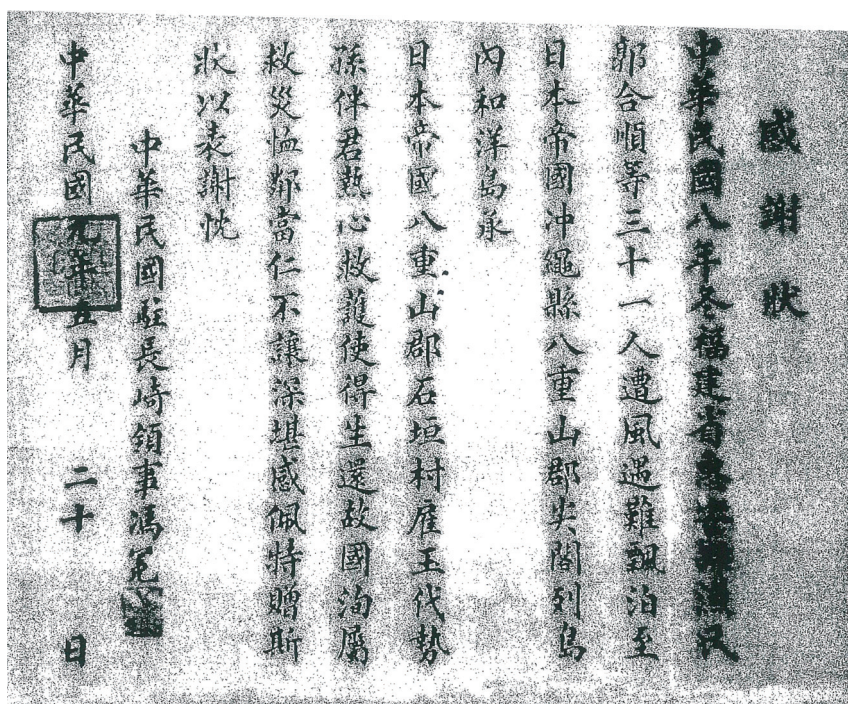 感謝狀
中華民國八年冬福建省惠安縣漁民
郭合順等三十一人遭風遇難飄泊至
日本帝國沖繩縣八重山郡尖閣列島
內和洋島承
日本帝國八重山郡石垣村雇玉代勢
孫伴君熱心救護使得生還故國洵屬
救災恤鄰當仁不讓深堪感佩特贈斯
狀以表謝忱
中華民國駐長崎領事馮冕
中華民國九年五月 二十 日